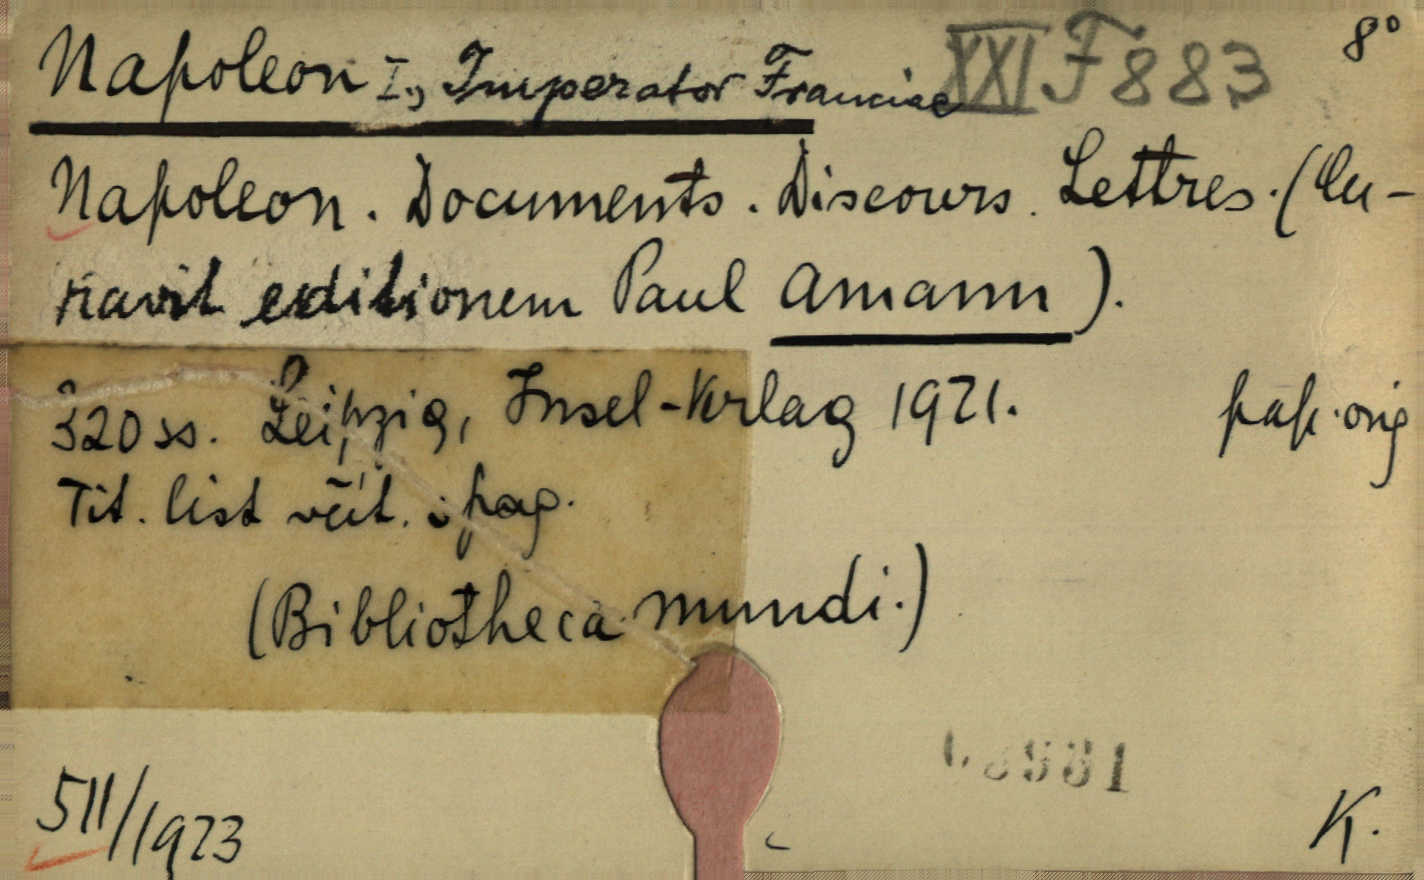 Napoleon I., Imperator Franciae XXI F 883 8°
Napoleon. Documents. Discours. Lettres. (Cu-
ravit editionem Paul Amann).
320 ss. Leipzig, Insel-Verlag 1921. pap. orig
Tit. list včít. i pag.
(Bibliotheca mundi.)
511/1923
K.